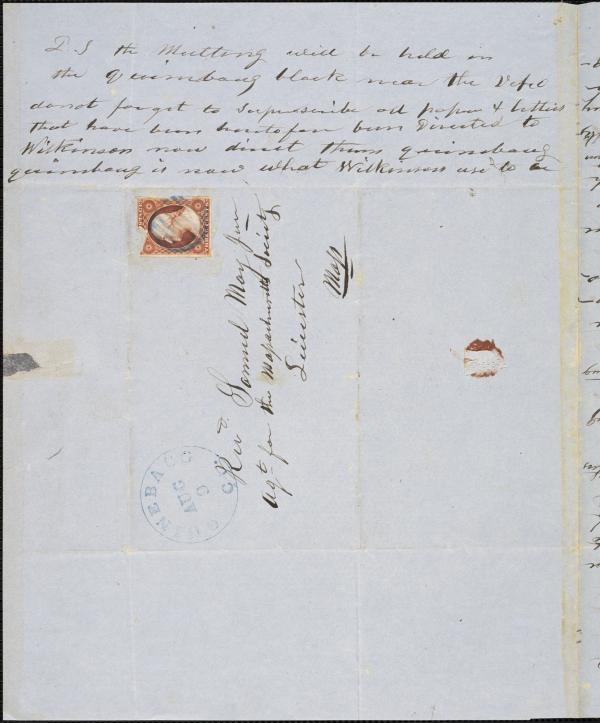 P.S the Meettong will be held in
the quinnbaug block near the Depo
do not forget to superscribe all papers & letters
that have been heretofore been Directed to
Wilkinson now direct them quinnbaug
quinnbaug is now what Wilkinson use to be
Revd. Samuel May Jun
Agt for the Massachusetts Society
Leicester
Mass
QUINEBAUG CT.
AUG 9